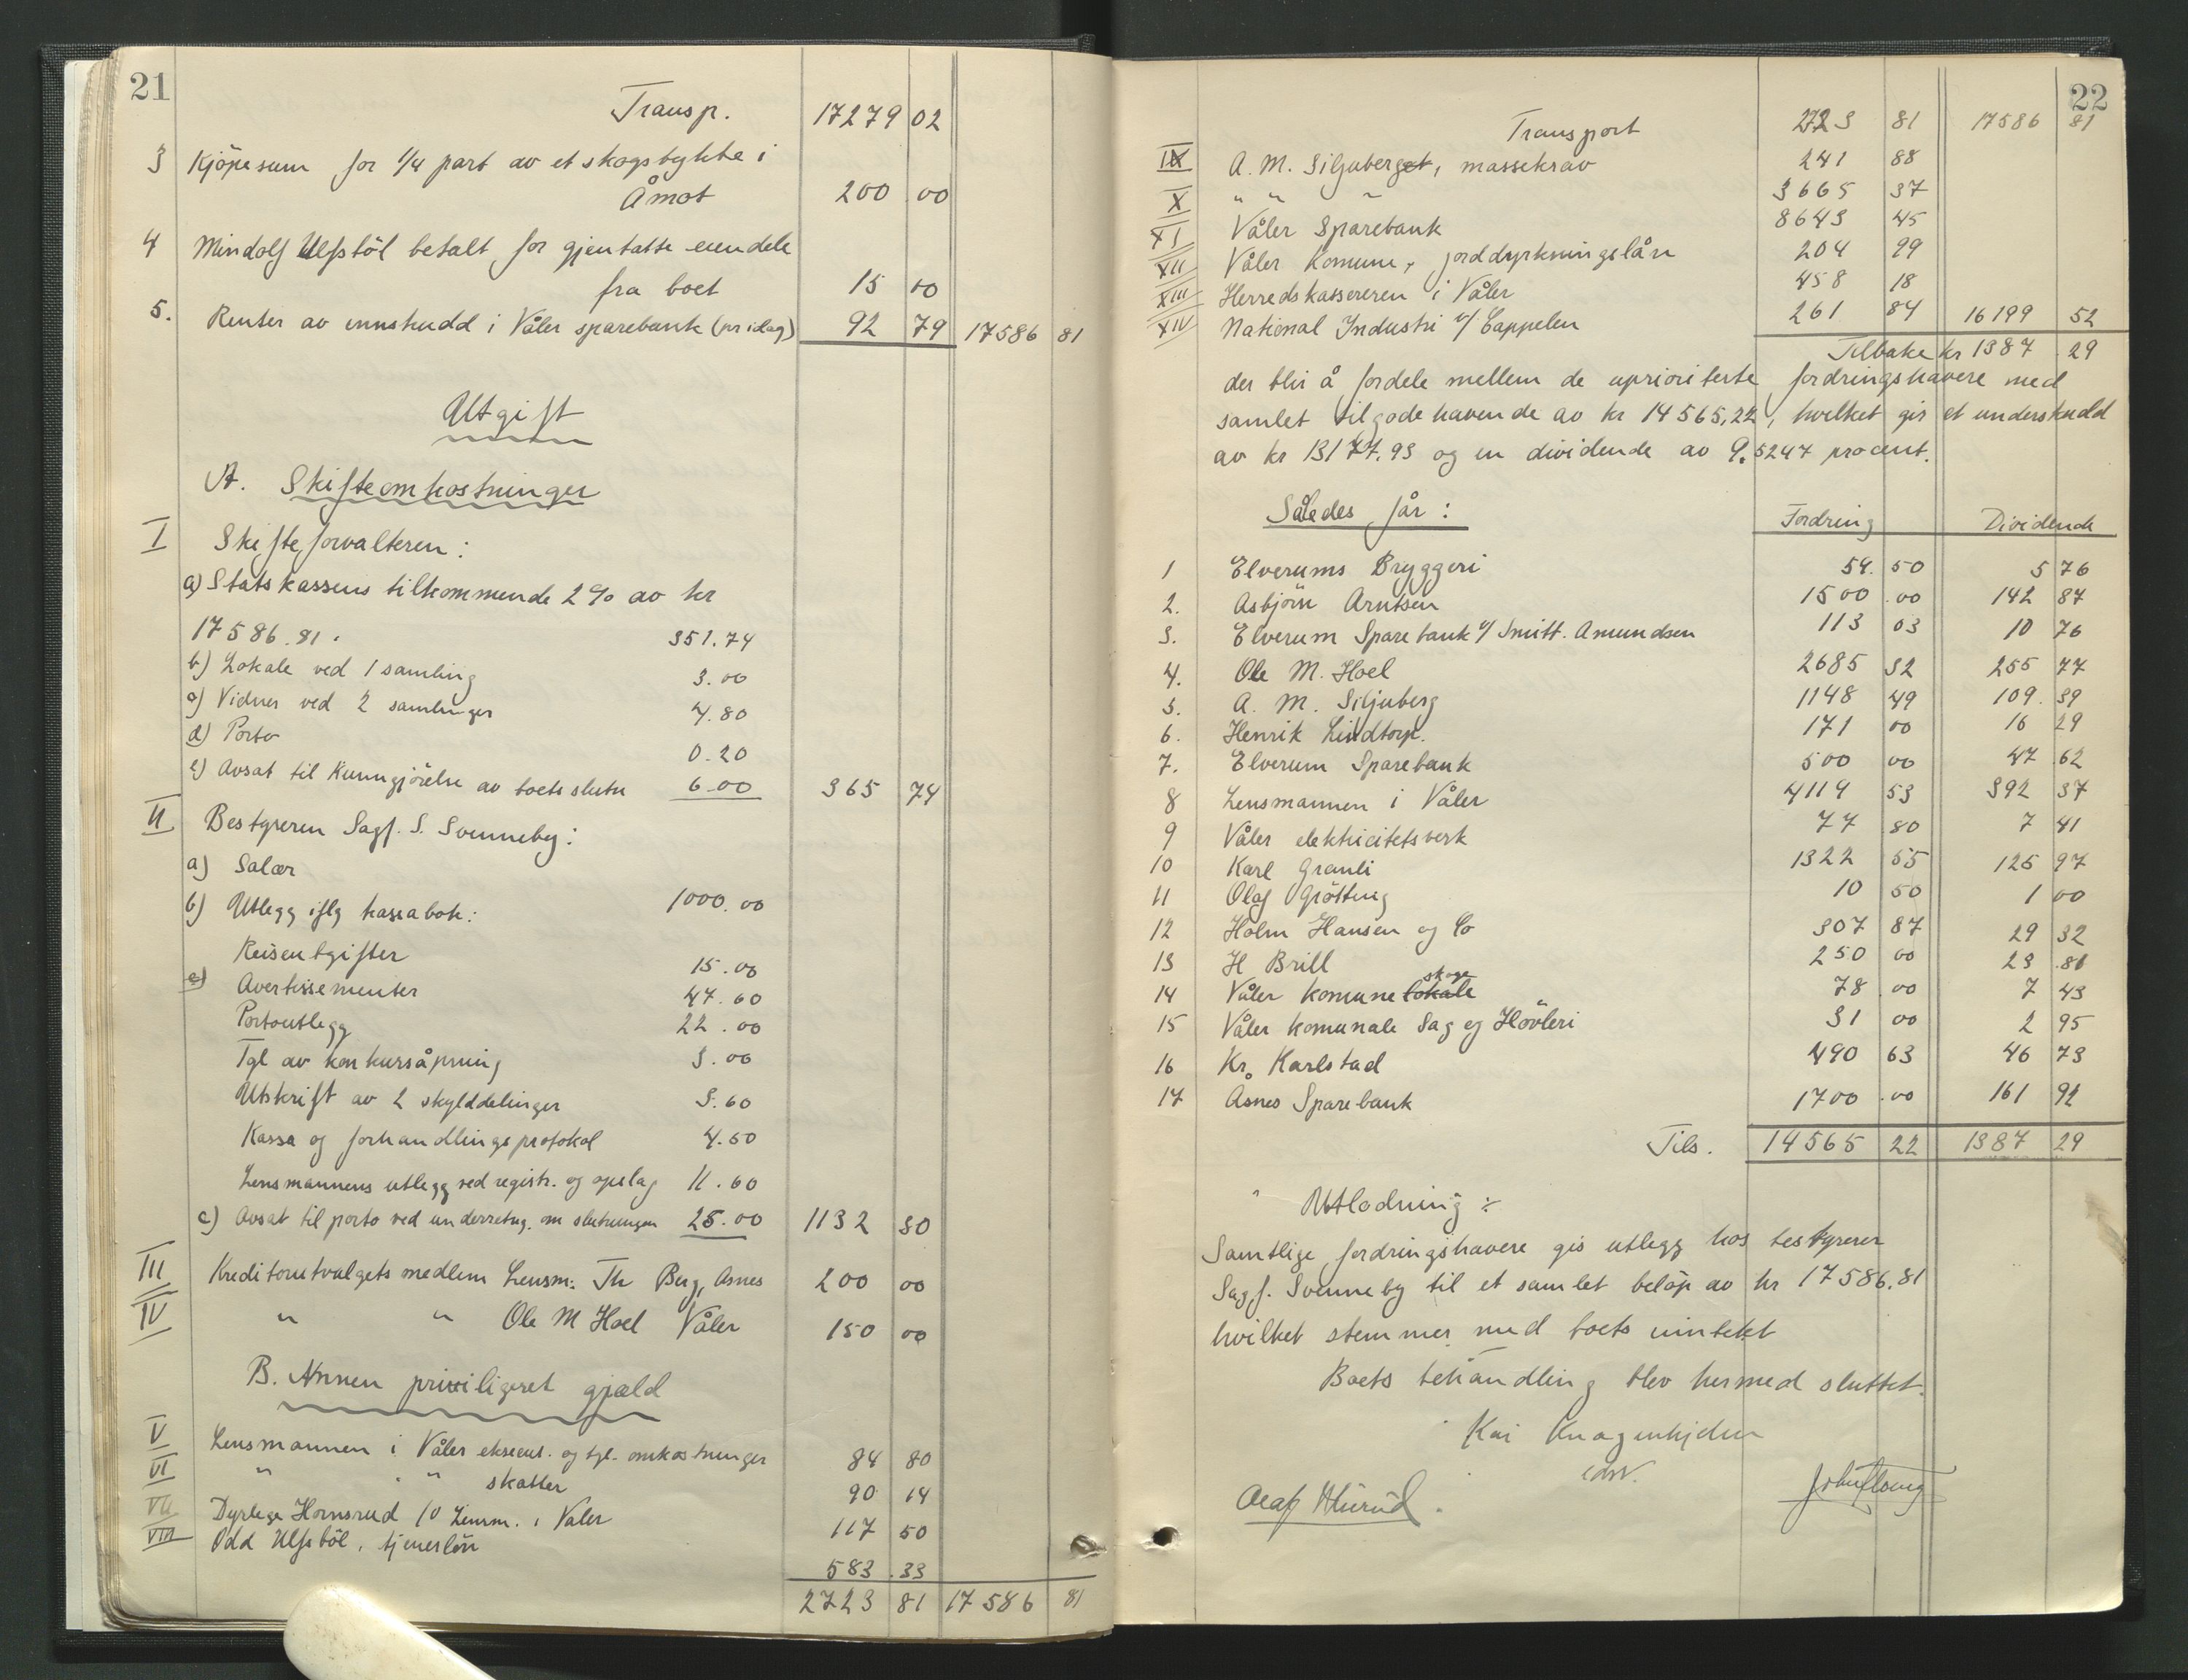 21
Transp. 17279 02
3 Kjöpesum for 1/4 part av et skogstykke i
Åmot 200 00
4 Mindolf Ulfsböl betalt for gjentatte eiendele
fra boet 15 00
5. Renter av innskudd i Våler sparebank (pr idag) 92 79 17586 81
Utgift
A. Skifteomkostninger
I Skifteforvalteren:
a) Statskassens tilkommende 2% av kr
17586.81. 351.74
b) Lokale ved 1 samling 3.00
c) Vidner ved 2 samlinger 4.80
d) Porto 0.20
e) Avsat til kunngjörelse av boets slutn 6.00 365 74
II Bestyreren Sagf. S. Svenneby:
a) Salær 1000.00
b) Utlegg iflg kassabok:
Reiseutgifter 15.00
c) Avertissementer 47.60
Portoutlegg 22.00
Tgl av konkursåpning 3.00
Utskrift av 2 skylddelinger 3.60
Kassa og forhandlingsprotokol 4.50
Lensmannens utlegg ved registr. og opslag 11.60
c) Avsat til porto ved underretng. om slutningen 25.00 1132 30
III Kreditorutvalgets medlem Lensm: Th Berg, Åsnes 200 00
IV " " Ole M Hoel Våler 150 00
B. Annen priviligeret gjæld
V Lensmannen i Våler eksecut. og tgl. omkostninger 84 80
VI " " skatter 90 14
VII Dyrlege Hornsrud c/o Lensm. i Våler 117 50
VIII Odd Ulfsböl, tjenerlön 583.33
2723 81 17586 81
22
Transport 2723 81 17586 81
IX A. M. Siljuberget, massekrav 241 88
X " " " 3665 37
XI Våler Sparebank 8643 45
XII Våler Komune, jorddyrkningslån 204 99
XIII Herredskassereren i Våler 458 18
XIV National Industri v/ Cappelen 261 84 16199 52
Tilbake kr 1387 29
der blir å fordele mellem de uprioriterte fordringshavere med
samlet tilgodehavende av kr 14565,22, hvilket gir et underskudd
av kr 13177.93 og en dividende av 9.5247 procent.
Således får: Fordring Dividende
1 Elverums Bryggeri 54.50 5 76
2. Asbjörn Arntsen 1500.00 142 87
3. Elverum Sparebank v/ Smitt. Amundsen 113 03 10 76
4. Ole M. Hoel 2685 32 255 77
5. A. M. Siljuberg 1148 49 109.39
6. Henrik Lindtorp. 171 00 16 29
7. Elverum Sparebank 500 00 47 62
8 Lensmannen i Våler 4119 53 392 37
9 Våler elektricitetsverk 77 80 7 41
10 Karl Granli 1322 55 125 97
11 Olaf Grötting 10 50 1 00
12 Holm Hansen og Co 307 87 29 32
13 H Brill 250 00 23.81
14 Våler komune lokale skoge 78.00 7 43
15 Våler komunale Sag og Hövleri 31 00 2 95
16 Kr. Karlstad 490 63 46 73
17 Åsnes Sparebank 1700.00 161 92
Tils. 14565 22 1387 29
Utlodning :
Samtlige fordringshavere gis utlegg hos bestyrerer
Sagf. Svenneby til et samlet belöp av kr 17586.81
hvilket stemmer med boets inntekt
Boets behandling blev hermed sluttet.
Kai Knagenhjelm
cdsv.